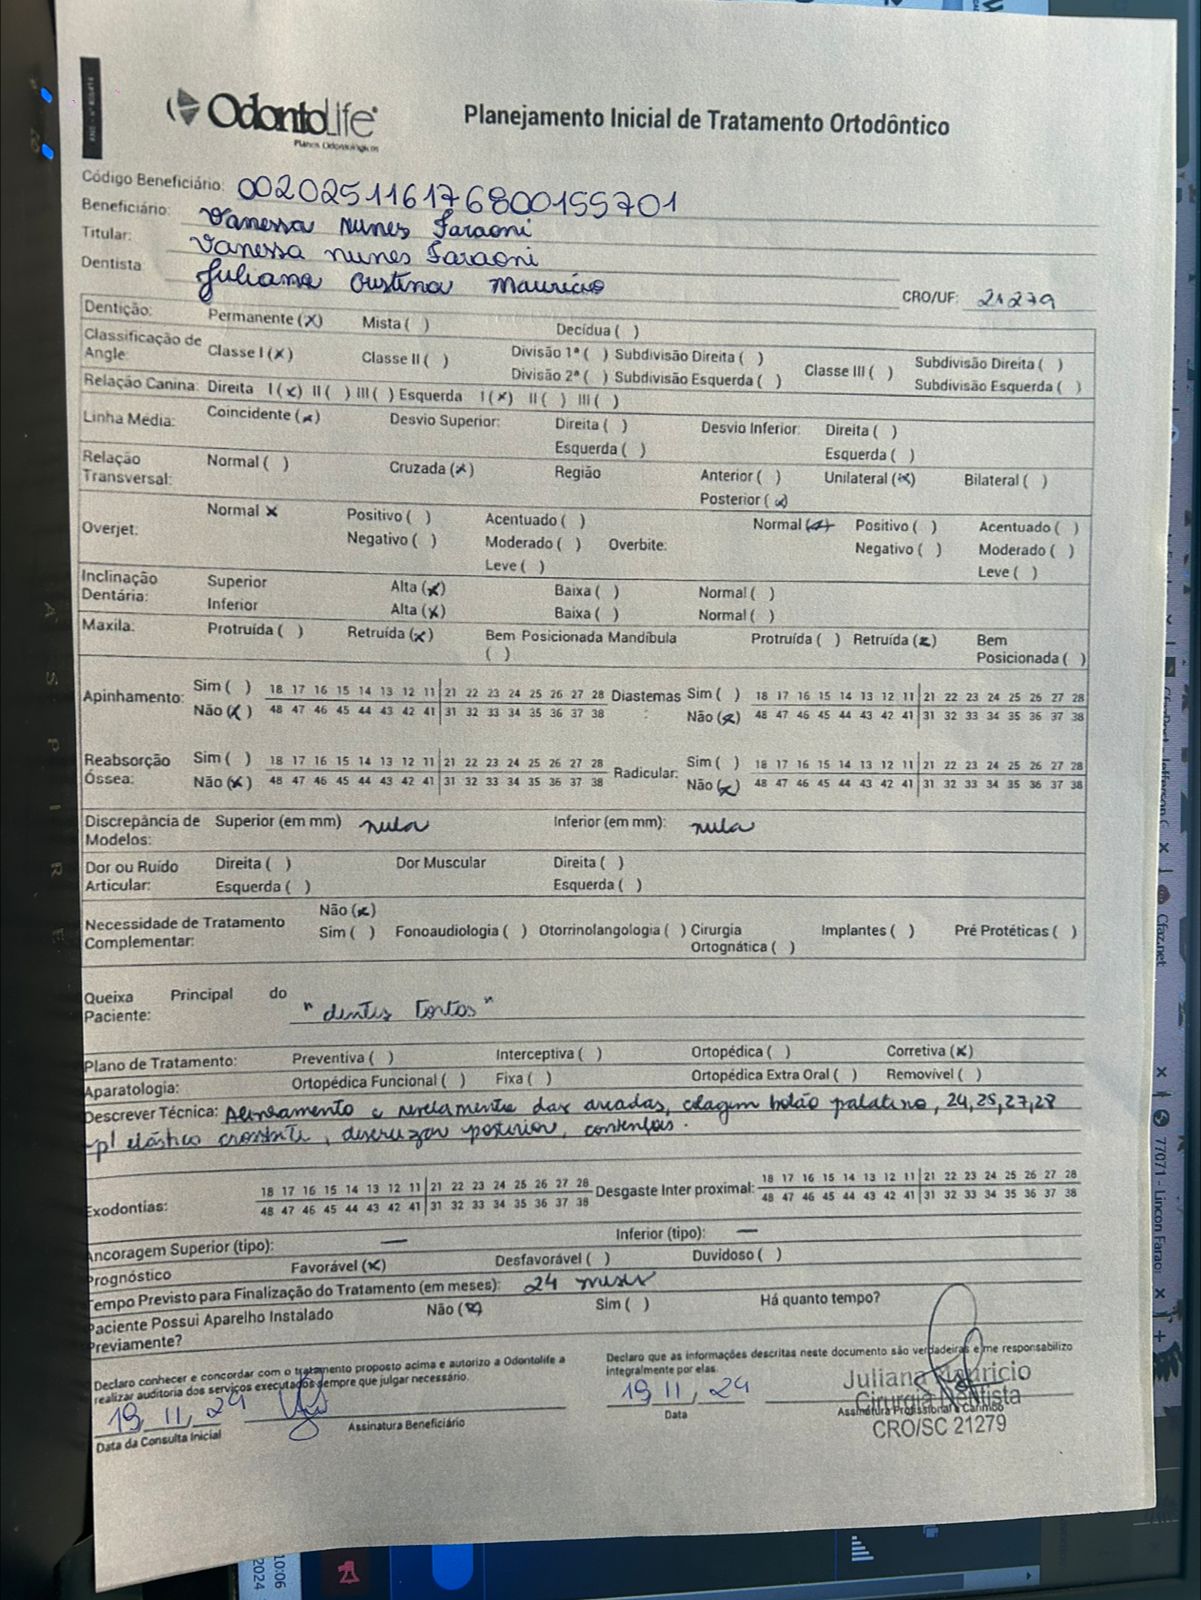 OdontoLife
Planos Odontológicos
Planejamento Inicial de Tratamento Ortodôntico
Código Beneficiário: 002025116176800155701
Beneficiário: Vanessa Nunes Faraoni
Titular: Vanessa nunes Faraoni
Dentista: Juliana Cristina Mauricio CRO/UF: 21279
Dentição: Permanente (x) Mista ( ) Decídua ( )
Classificação de Angle: Classe I (x) Classe II ( ) Divisão 1ª ( ) Subdivisão Direita ( ) Classe III ( ) Subdivisão Direita ( )
Divisão 2ª ( ) Subdivisão Esquerda ( ) Subdivisão Esquerda ( )
Relação Canina: Direita I (x) II ( ) III ( ) Esquerda I (x) II ( ) III ( )
Linha Média: Coincidente (x) Desvio Superior: Direita ( ) Desvio Inferior: Direita ( )
Esquerda ( ) Esquerda ( )
Relação Transversal: Normal ( ) Cruzada (x) Região Anterior ( ) Unilateral (x) Bilateral ( )
Posterior (x)
Overjet: Normal x Positivo ( ) Acentuado ( ) Normal (x) Positivo ( ) Acentuado ( )
Negativo ( ) Moderado ( ) Overbite: Negativo ( ) Moderado ( )
Leve ( ) Leve ( )
Inclinação Dentária: Superior Alta (x) Baixa ( ) Normal ( )
Inferior Alta (x) Baixa ( ) Normal ( )
Maxila: Protruída ( ) Retruída (x) Bem Posicionada ( ) Mandíbula Protruída ( ) Retruída (x) Bem Posicionada ( )
Apinhamento: Sim ( ) 18 17 16 15 14 13 12 11 21 22 23 24 25 26 27 28 Diastemas: Sim ( ) 18 17 16 15 14 13 12 11 21 22 23 24 25 26 27 28
Não (x) 48 47 46 45 44 43 42 41 31 32 33 34 35 36 37 38 Não (x) 48 47 46 45 44 43 42 41 31 32 33 34 35 36 37 38
Reabsorção Óssea: Sim ( ) 18 17 16 15 14 13 12 11 21 22 23 24 25 26 27 28 Radicular: Sim ( ) 18 17 16 15 14 13 12 11 21 22 23 24 25 26 27 28
Não (x) 48 47 46 45 44 43 42 41 31 32 33 34 35 36 37 38 Não (x) 48 47 46 45 44 43 42 41 31 32 33 34 35 36 37 38
Discrepância de Modelos: Superior (em mm) nula Inferior (em mm): nula
Dor ou Ruido Articular: Direita ( ) Dor Muscular Direita ( )
Esquerda ( ) Esquerda ( )
Necessidade de Tratamento Complementar: Não (x)
Sim ( ) Fonoaudiologia ( ) Otorrinolangologia ( ) Cirurgia Ortognática ( ) Implantes ( ) Pré Protéticas ( )
Queixa Principal do Paciente: "dentes tortos"
Plano de Tratamento: Preventiva ( ) Interceptiva ( ) Ortopédica ( ) Corretiva (x)
Aparatologia: Ortopédica Funcional ( ) Fixa ( ) Ortopédica Extra Oral ( ) Removível ( )
Descrever Técnica: Alinhamento e nivelamento das arcadas, colagem botão palatino, 24,25,27,28
p/ elástico crossbite, descruzar posterior, contenções.
Exodontias: 18 17 16 15 14 13 12 11 21 22 23 24 25 26 27 28 Desgaste Inter proximal: 18 17 16 15 14 13 12 11 21 22 23 24 25 26 27 28
48 47 46 45 44 43 42 41 31 32 33 34 35 36 37 38 48 47 46 45 44 43 42 41 31 32 33 34 35 36 37 38
Ancoragem Superior (tipo): — Inferior (tipo): —
Prognóstico Favorável (x) Desfavorável ( ) Duvidoso ( )
Tempo Previsto para Finalização do Tratamento (em meses): 24 meses
Paciente Possui Aparelho Instalado Previamente? Não (x) Sim ( ) Há quanto tempo?
Declaro conhecer e concordar com o tratamento proposto acima e autorizo a Odontolife a
realizar auditoria dos serviços executados sempre que julgar necessário.
19, 11, 24
Data da Consulta Inicial Assinatura Beneficiário
Declaro que as informações descritas neste documento são verdadeiras e me responsabilizo
integralmente por elas.
19 11, 24
Data Assinatura Profissional e Carimbo
Juliana Mauricio
Cirurgiã Dentista
CRO/SC 21279
ASPIRE
Cfaz.net
77071 - Lincon Farao
10:06
2024